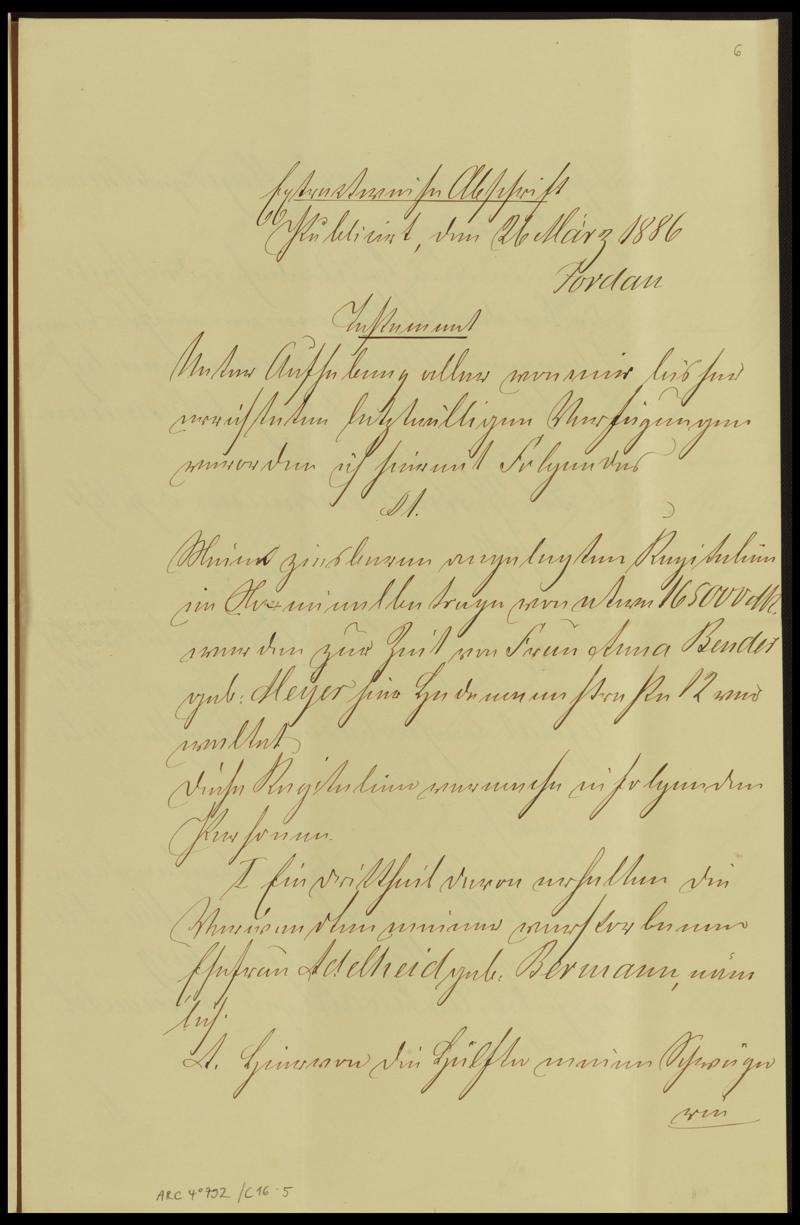 6
Extractweise Abschrift
Publicirt, den 26 März 1886
Jordan
Testament
Unter Aufhebung aller von mir bisher
errichteten letztwilligen Verfügungen
verordne ich hiermit Folgendes
§ 1.
Meine zinsbaren angelegten Kapitalien
im Nominalbetrage von etwa 165000 Mk.
werden zur Zeit von Frau Anna Bender
geb: Meyer hier Lindemannstraße 12 ver
waltet
Diese Kapitalien vermache ich folgenden
Personen.
I Ein Drittheil davon erhalten die
Verwandten meiner verstorbenen
Ehefrau Adelheid geb: Bermann, näm
lich:
A. Hiervon die Hälfte meiner Schwäge
rin
ARC 4° 792 /C16-5